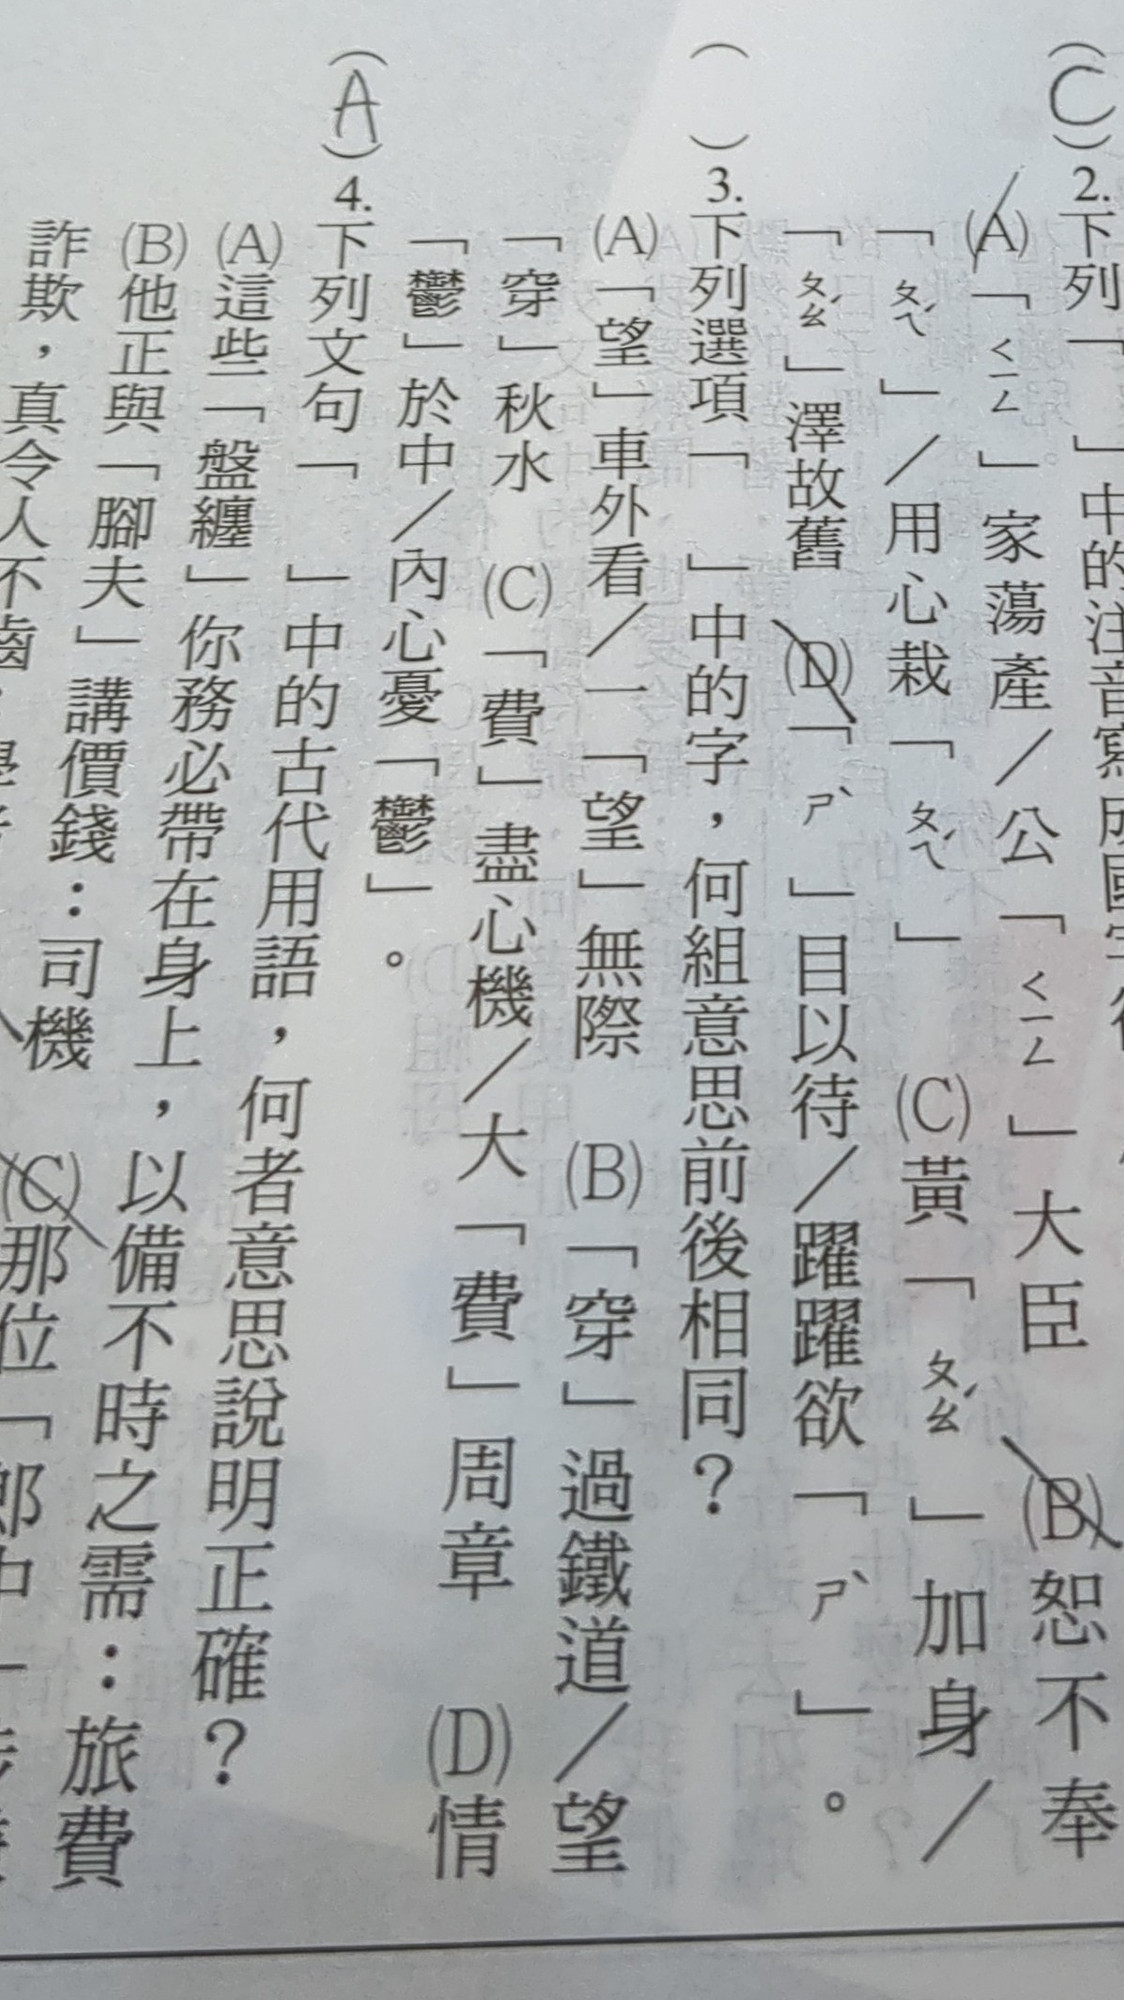 (C) 2. 下列「　」中的注音寫成國字後
(A)「ㄑㄧㄥ」家蕩產／公「ㄑㄧㄥ」大臣　(B)恕不奉
「ㄆㄟˊ」／用心栽「ㄆㄟˊ」　(C)黃「ㄆㄠˊ」加身／
「ㄆㄠˊ」澤故舊　(D)「ㄕˋ」目以待／躍躍欲「ㄕˋ」。
(　) 3. 下列選項「　」中的字，何組意思前後相同？
(A)「望」車外看／一「望」無際　(B)「穿」過鐵道／望
「穿」秋水　(C)「費」盡心機／大「費」周章　(D)情
「鬱」於中／內心憂「鬱」。
(A) 4. 下列文句「　」中的古代用語，何者意思說明正確？
(A)這些「盤纏」你務必帶在身上，以備不時之需：旅費
(B)他正與「腳夫」講價錢：司機　(C)那位「郎中
詐欺，真令人不齒